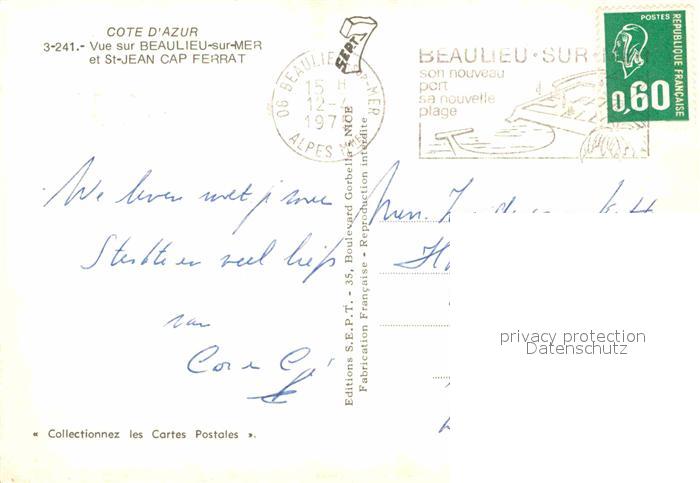 COTE D'AZUR
3-241.- Vue sur BEAULIEU-sur-MER
et St-JEAN CAP FERRAT
SEPT
06 BEAULIEU-sur-MER
15 H
12-4
197
ALPES
BEAULIEU·SUR·
son nouveau
port
sa nouvelle
plage
POSTES
REPUBLIQUE FRANÇAISE
0,60
We leven met je mee
Sterkte en veel liefs
van
Cor e
Editions S.E.P.T. - 35, Boulevard Gorbella - NICE
Fabrication Française - Reproduction interdite
privacy protection
Datenschutz
« Collectionnez les Cartes Postales ».